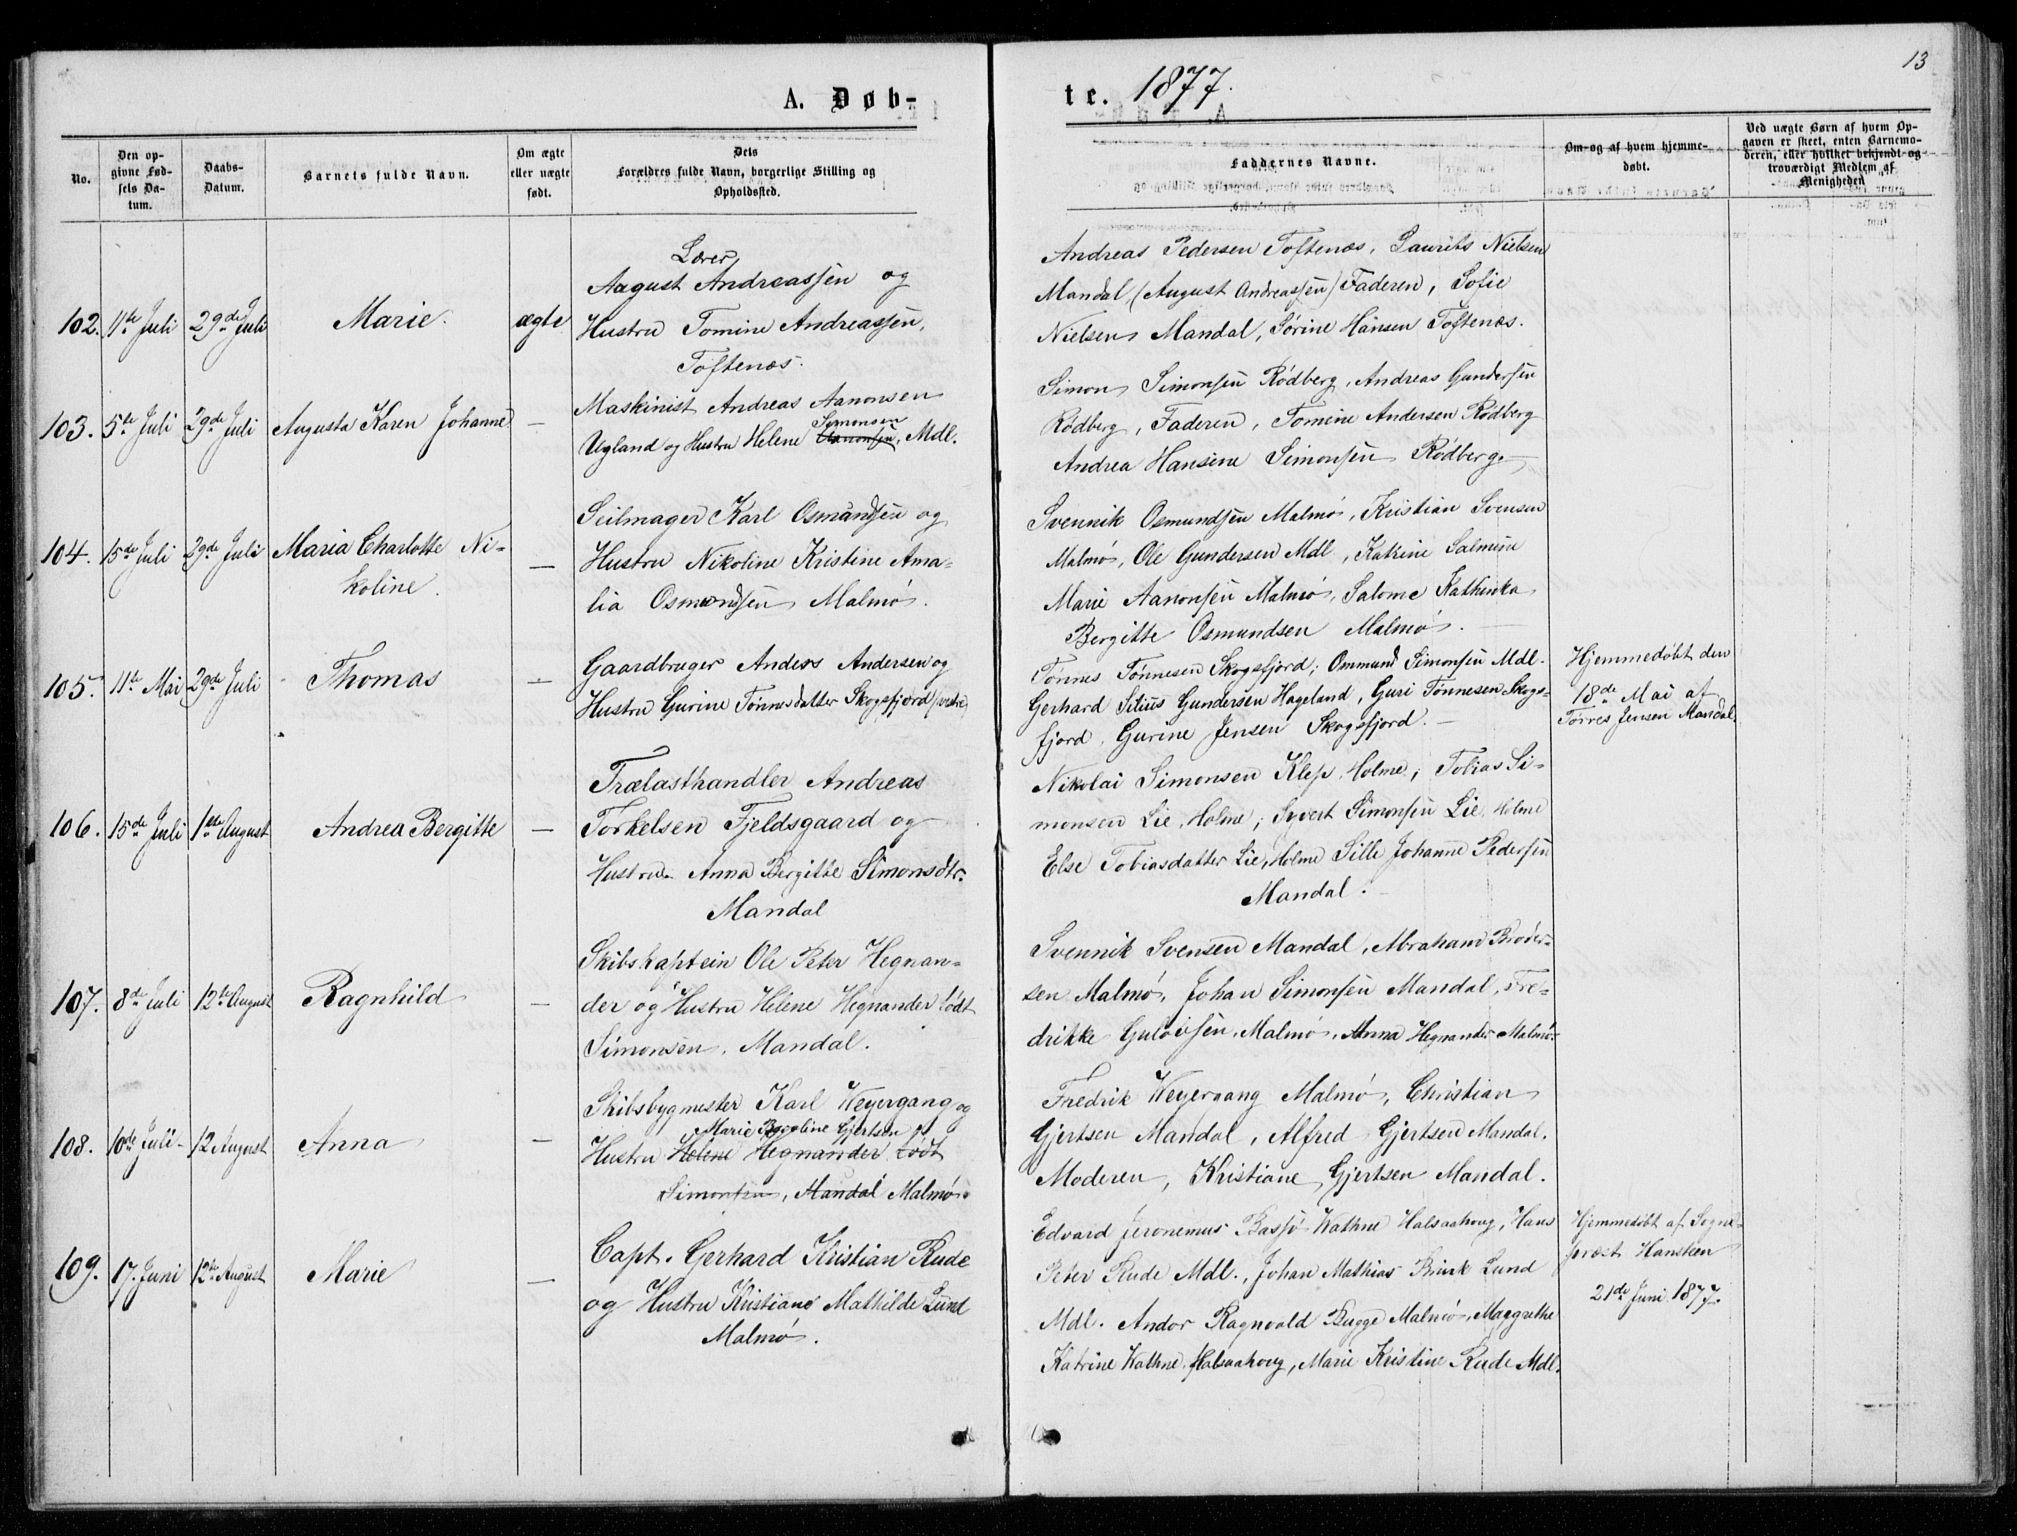 13
A. Døb-
te. 1877.
No.
Den op-
givne Fød-
sels Da-
tum.
Daabs-
Datum.
Barnets fulde Navn.
Om ægte
eller uægte
født.
Dets
Forældres fulde Navn, borgerlige Stilling og
Opholdssted.
Faddernes Navne.
Om og af hvem hjemme-
døbt.
Ved uægte Børn af hvem Op-
gaven er skeet, enten Barnemo-
deren, eller hvilket bekjendt og
troværdigt Medlem af
Menigheden
102. 11te Juli 29de Juli Marie. ægte
Lærer
August Andreassen og
Hustru Tomine Andreassen,
Toftenæs.
Andreas Pedersen Toftenæs, Laurits Nielsen
Mandal (August Andreassen) Faderen, Sofie
Nielsen Mandal, Sørine Hansen Toftenæs.
103. 5te Juli 29de Juli Augusta Karen Johanne —
Maskinist Andreas Aanonsen
Simonsen
Ugland og Hustru Helene Aanonsen, Mdl.
Simon Simonsen Rødberg, Andreas Gundersen
Rødberg, Faderen, Tomine Andersen Rødberg
Andrea Hansine Simonsen Rødberg. —
104. 15de Juli 29de Juli Maria Charlotte Ni-
koline. —
Seilmager Karl Osmundsen og
Hustru Nikoline Kristine Ama-
lia Osmundsen Malmø.
Svennik Osmundsen Malmø, Kristian Svensen
Malmø, Ole Gundersen Mdl, Katrine Salmine
Marie Aanonsen Malmø, Salome Kathinka
Bergitte Osmundsen Malmø. —
105. 11te Mai 29de Juli Thomas —
Gaardbruger Anders Andersen og
Hustru Gurine Tønnesdatter Skogsfjord (vestre)
Tønnes Tønnesen Skogsfjord; Ommund Simonsen Mdl.
Gerhard Gundersen Hageland, Guri Tønnesen Skogs-
fjord, Gurine Jensen Skogsfjord. —
Hjemmedøbt den
18de Mai af
Tørres Jensen Mandal.
106. 15de Juli 1ste August Andrea Bergitte —
Trælasthandler Andreas
Torkelsen Fjeldsgaard og
Hustru Anna Bergitte Simonsdtr.
Mandal
Nikolai Simonsen Klep, Holme; Tobias Si-
monsen Lie, Holme; Syvert Simonsen Lie, Holme
Else Tobiasdatter Lie, Holme Sille Johanne Pedersen
Mandal. —
107. 8de Juli 12te August Ragnhild —
Skibskaptein Ole Peter Hegnan-
der og Hustru Helene Hegnander født
Simonsen, Mandal.
Svennik Svensen Mandal, Abraham Broder-
sen Malmø, Johan Simonsen Mandal, Fre-
drikke Gulovsen, Malmø, Anna Hegnander Malmø.
108. 10de Juli 12 August Anna —
Skibsbygmester Karl Weyergang og
Marie Gjertsen
Hustru Helene Hegnander født
Simonsen, Mandal Malmø.
Fredrik Weyergang Malmø, Christian
Gjertsen Mandal, Alfred Gjertsen Mandal.
Moderen, Kristiane Gjertsen Mandal.
109. 17. Juni 12te August Marie —
Capt. Gerhard Kristian Rude
og Hustru Kristiane Mathilde Lund
Malmø.
Edvard Jeronemus Bassø Wathne Halsaahoug, Hans
Peter Rude Mdl., Johan Mathias Brink Lund
Mdl. Andor Ragnvald Bugge Malmø, Margrethe
Katrine Wathne, Halsaahoug, Marie Kristine Rude Mdl.
Hjemmedøbt af Sogne-
præst Hansteen
21de Juni 1877.